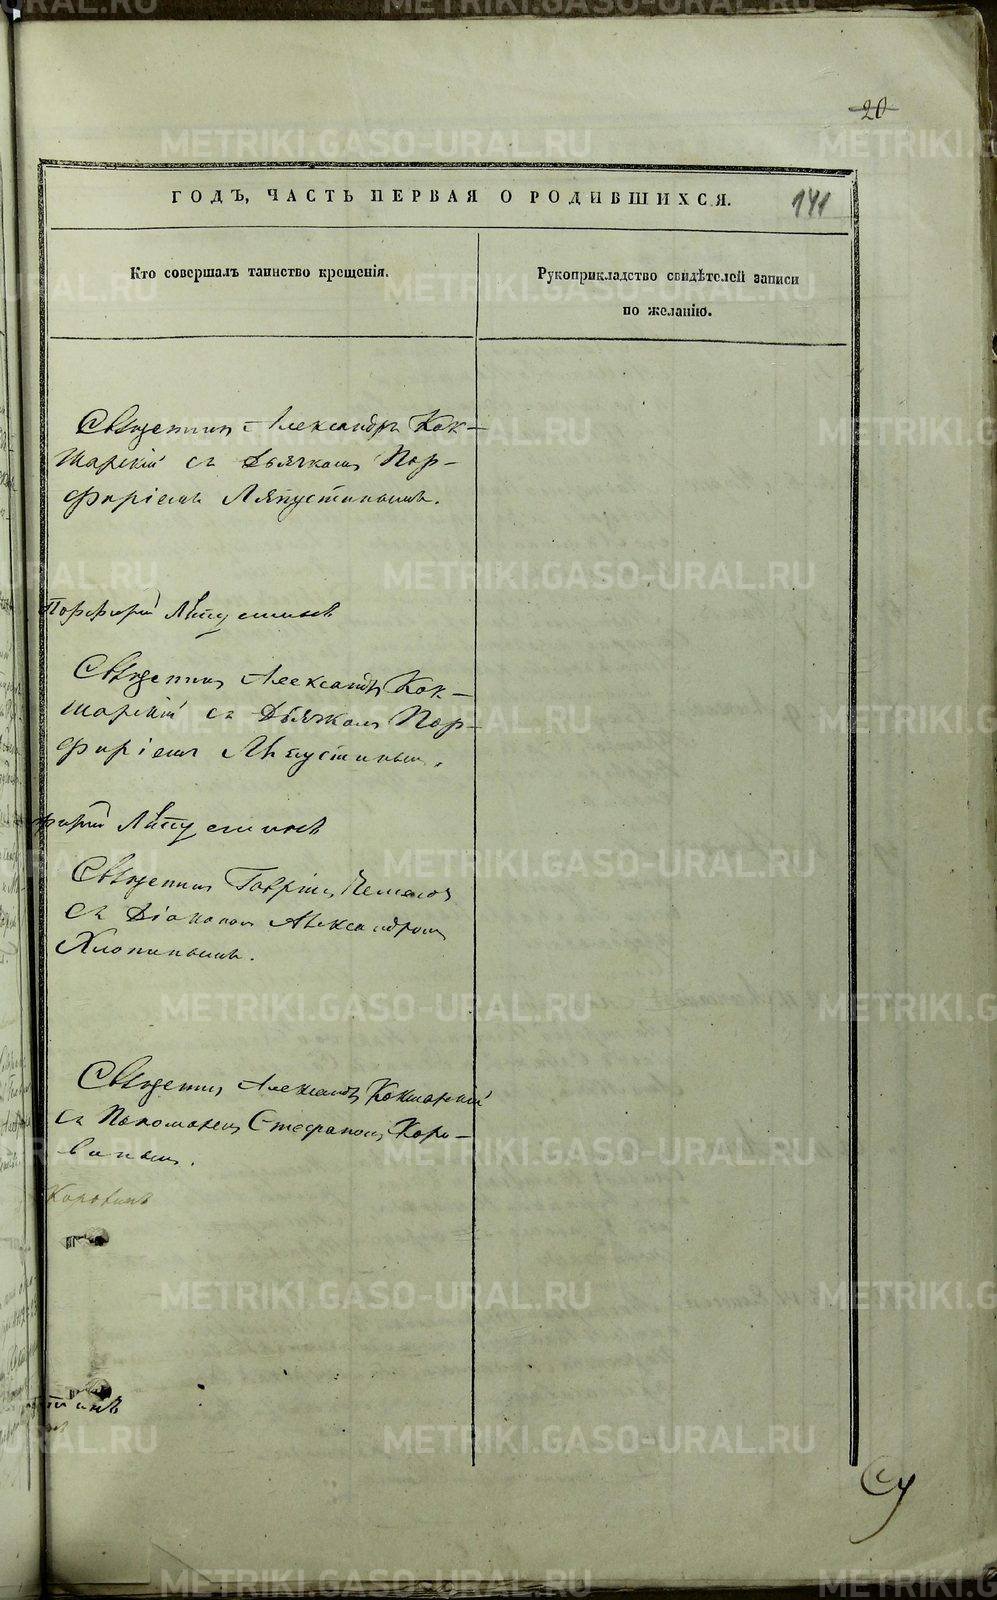 20
METRIKI.GASO-URAL.RU
ГОДЪ, ЧАСТЬ ПЕРВАЯ О РОДИВШИХСЯ.
141
Кто совершалъ таинство крещенія.
Рукоприкладство свидѣтелей записи
по желанію.
Священникъ Александръ Кок-
шарскій съ Дьячкомъ Пор-
фиріемъ Ляпустинымъ.
Порфирій Ляпустинъ
Священникъ Александръ Кок-
шарскій съ Дьячкомъ Пор-
фиріемъ Ляпустинымъ.
фирій Ляпустинъ
Священникъ Гавріилъ
съ Діакономъ Александромъ
Хлопинымъ.
Священникъ Александръ Кокшарскій
съ Пономаремъ Стефаномъ Коро-
винымъ.
Коровинъ
тинъ